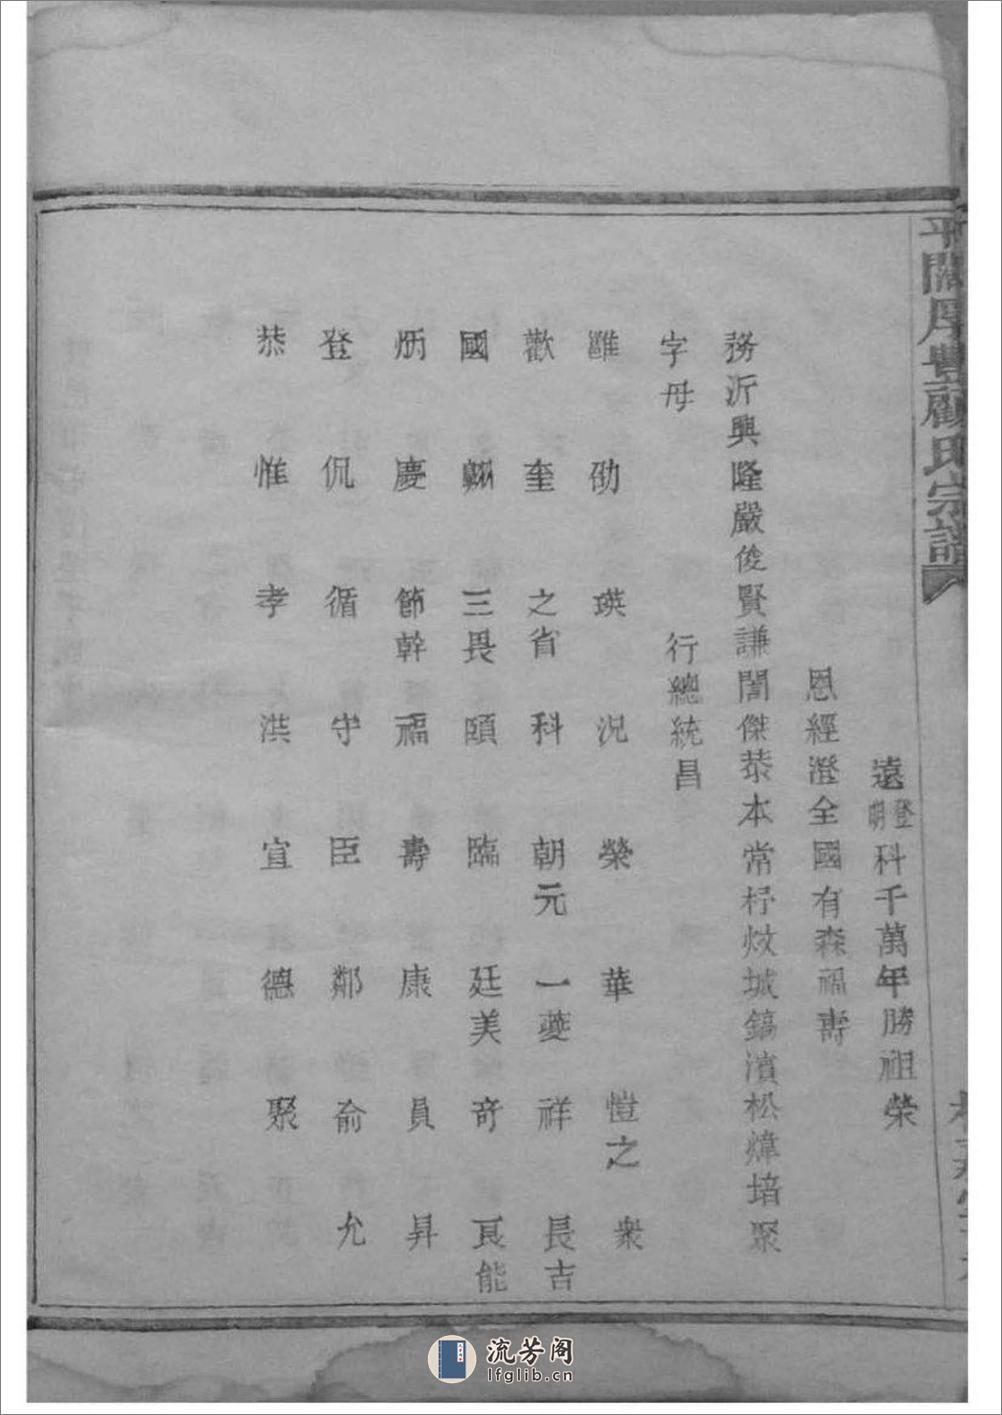 平關厚豊顧氏宗譜
遠登明科千萬年勝祖榮
恩經澄全國有森福壽
務沂興隆嚴俊賢謙誾傑恭本常杼炇城鎬濱松煒培聚
行總統昌
字母
雝 劭 瑛 況 榮 華 愷之 衆
歡 奎 之省 科 朝元 一夔 祥 長吉
國 翱 三畏 頤 臨 廷美 奇 良能
炳 慶 節幹 福 壽 康 員 昇
登 侃 循 守 臣 鄰 俞 允
恭 惟 孝 洪 宣 德 聚
流芳阁
lfglib.cn